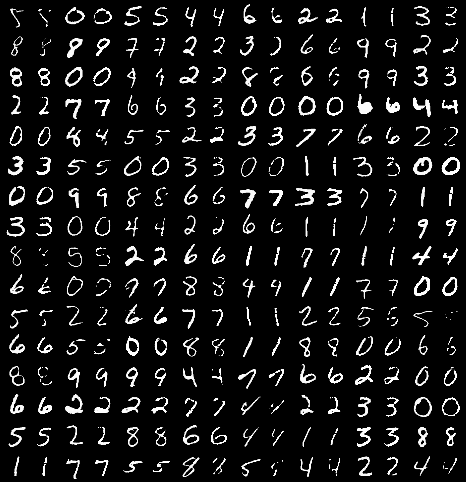 5 5 0 0 5 5 4 4 6 6 2 2 1 1 3 3
8 8 8 9 7 7 2 2 3 2 6 6 9 9 2 2
8 8 0 0 4 4 2 2 8 8 6 6 9 9 3 3
2 2 7 7 6 6 3 3 0 0 0 0 6 6 4 4
0 0 8 4 5 5 2 2 3 3 7 7 6 6 2 2
3 3 5 5 0 0 3 3 0 0 1 1 3 3 0 0
0 0 9 9 8 8 6 6 7 7 3 3 7 7 1 1
3 3 0 0 4 4 2 2 6 6 1 1 1 1 9 9
8 8 5 5 2 2 6 6 1 1 7 7 1 1 4 4
6 6 0 0 7 7 8 8 9 9 1 1 7 7 0 0
5 5 2 2 6 6 7 7 1 1 2 2 5 5 5
6 6 5 5 0 0 8 8 1 1 8 8 0 0 6 6
8 8 9 9 9 9 4 4 7 7 6 6 2 2 0 0
6 6 2 2 2 2 7 7 4 4 2 2 3 3 0 0
5 5 2 2 8 8 6 6 4 4 1 1 3 3 8 8
1 1 7 7 5 5 8 8 5 5 4 4 2 2 4 4